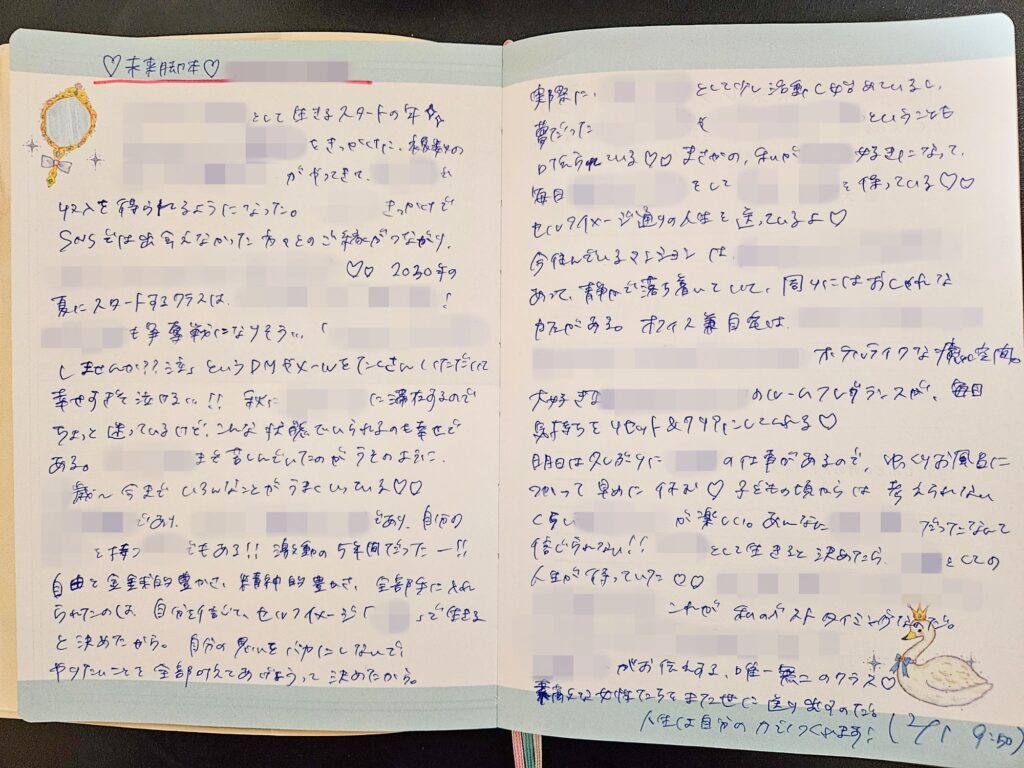 ♡未来脚本♡
として生きるスタートの年☆☆
をきっかけに、複数の
がやってきて、 れ
収入を得られるようになった。 きっかけで
SNSでは出会えなかった方々とのご縁がつながり、
♡♡ 2030年の
夏にスタートするクラスは、 !
も争奪戦になりそう…「
しませんか??泣」というDMやメールをたくさんいただいて
幸せすぎて泣ける…!! 秋に に滞在するので
ちょっと迷っているけど、こんな状態でいられるのも幸せで
ある。 まで苦しんでいたのがうそのように、
歳〜今までいろんなことがうまくいっている♡♡
であり、 であり、自分の
を持つ でもある!! 激動の5年間だったー!!
自由と金銭的豊かさ、精神的豊かさ、全部手に入れ
られたのは、自分を信じて、セルフイメージ「 」で生きる
と決めたから。自分の思いをバカにしないで、
やりたいことを全部叶えてあげようって決めたから。
実際に、 として少し活動し始めているし、
夢だった を ということも
叶えられている♡♡ まさかの、私が 好きになって、
毎日 をして を保っている♡♡
セルフイメージ通りの人生を送っているよ♡
今住んでいるマンションは、
あって、静かで落ち着いていて、周りにはおしゃれな
カフェがある。オフィス兼自宅は、
ホテルライクな癒し空間。
大好きな のルームフレグランスが、毎日
気持ちをリセット&クリアにしてくれる♡
明日は久しぶりに の仕事があるので、ゆっくりお風呂に
つかって早めに休む♡ 子どもの頃からは考えられない
くらい が楽しい。あんなに だったなんて
信じられない!! として生きると決めたら、 としての
人生が待っていた♡♡
これが私のベストタイミングなのだ。
がお伝えする、唯一無二のクラス♡
な女性たちをまた世に送り出すのだ。
人生は自分の力でつくれます! (2/1 9:50)